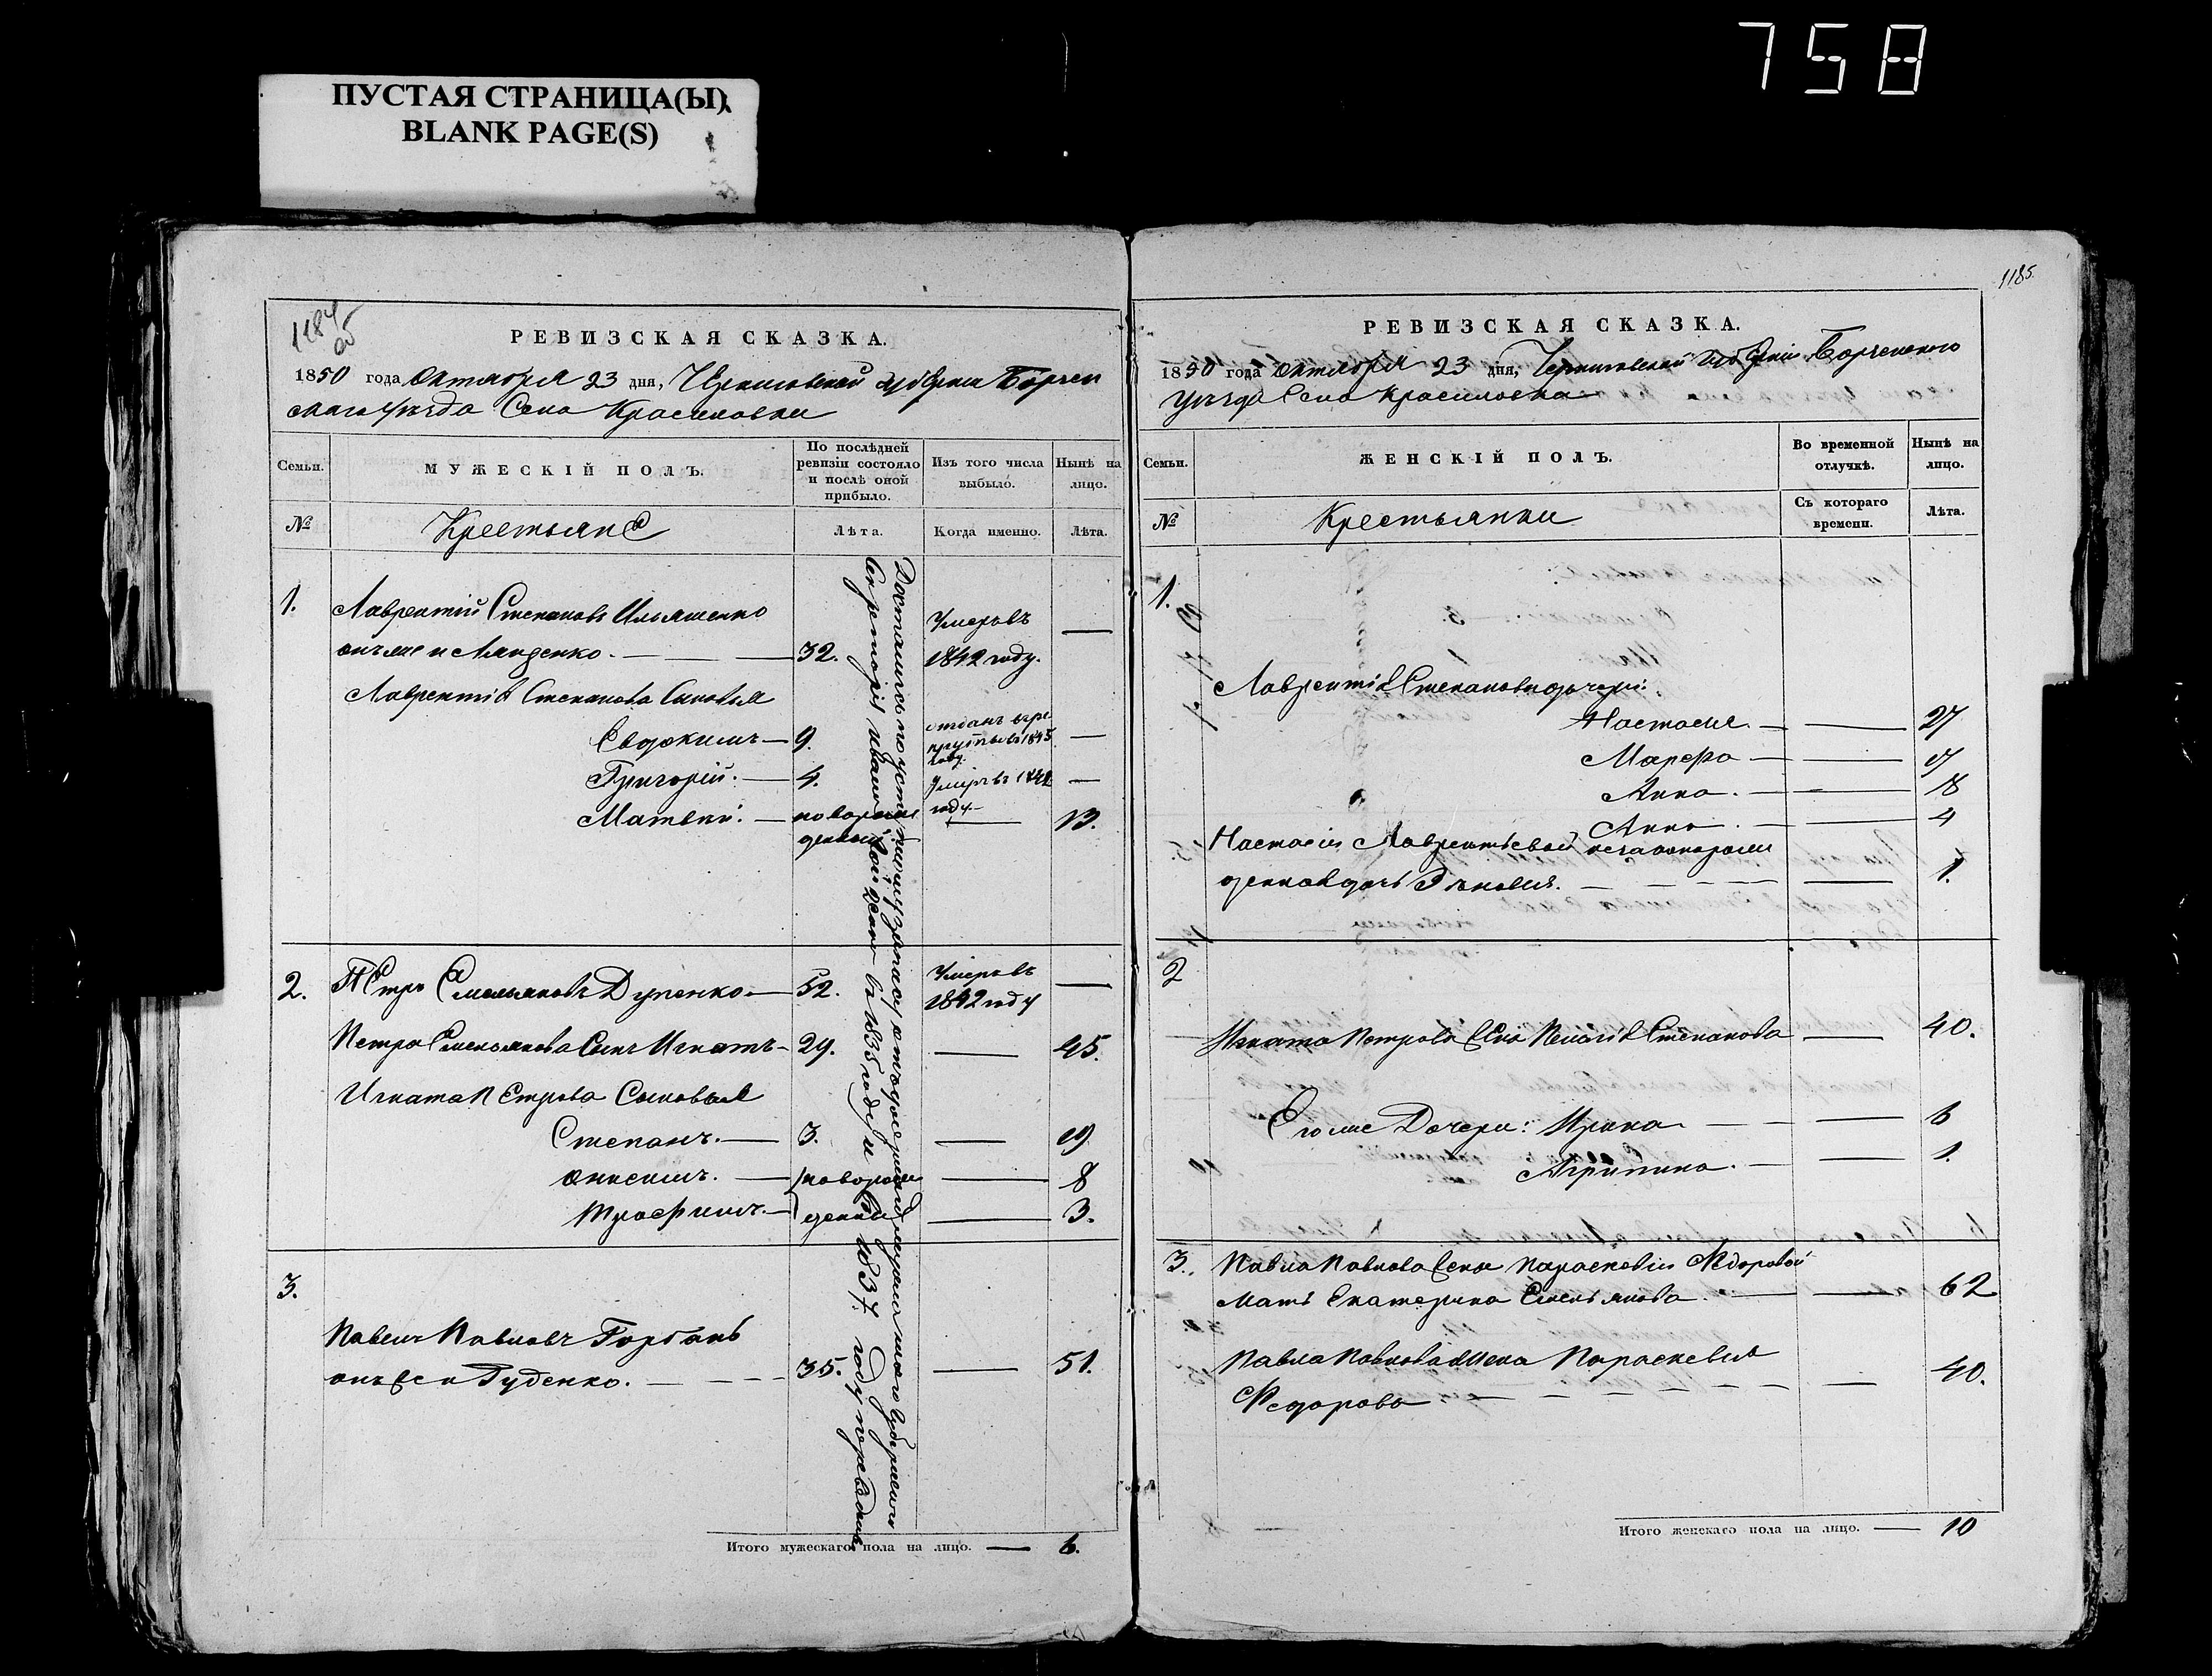 758
ПУСТАЯ СТРАНИЦА(Ы),
BLANK PAGE(S)
1184
об
РЕВИЗСКАЯ СКАЗКА.
1850 года Октября 23 дня, Черниговской губернии Борзен
скаго уезда Села Красиловки
Семьи. МУЖЕСКІЙ ПОЛЪ. По послѣдней ревизіи состояло и послѣ оной прибыло. Изъ того числа выбыло. Нынѣ на лицо.
№ Крестьяне Лѣта. Когда именно. Лѣта.
1. Лаврентій Степановъ Ильяшенко Умеръ въ —
онъ же и Лянденко. — 32. 1842 году.
Лаврентія Степанова Сыновья
Евдокимъ — 9. отданъ в ре-
крутъ въ 1845 —
году.
Григорій. — 4. Умеръ въ —
году
Матвей. — новорож — 13.
денный
2. Петръ Емельяновъ Дупенко — 52. Умеръ въ —
1842 году
Петра Емельянова Сынъ Игнатъ — 29. — 45.
Игната Петрова Сыновья
Степанъ. — 3. — 19
Онисимъ. — новорож — 8
Трофимъ. — денны — 3.
3.
Павелъ Павловъ Горбань
онъ же и Руденко. — 35. — 51.
Достались по уступному запису отъ
Секреторія въ 1835 году и въ 1837 году переведены
Итого мужескаго пола на лицо. — 6.
1185.
РЕВИЗСКАЯ СКАЗКА.
1850 года Октября 23 дня, Черниговской губерніи Борзенского
уезда Села Красиловка
Семьи. ЖЕНСКІЙ ПОЛЪ. Во временной отлучкѣ. Нынѣ на лицо.
№ Крестьянки Съ котораго времени. Лѣта.
1.
Лаврентія Степанова дочери:
Настасия — — 27
Марфа — —
Анна. — — 18
Анна. — — 4
Настасіи Лаврентьевой незаконорож
денная дочь — — 1.
2
Игната Петрова жена Пелагія Степанова — 40.
Его же Дочери: Ирина — — 6
Агрипина. — — 1.
3. Павла Павлова жены Параскевіи Федоровой
Мать Екатерина Емельянова. — — 62
Павла Павлова жена Параскевия
Федорова — — 40.
Итого женскаго пола на лицо. — 10